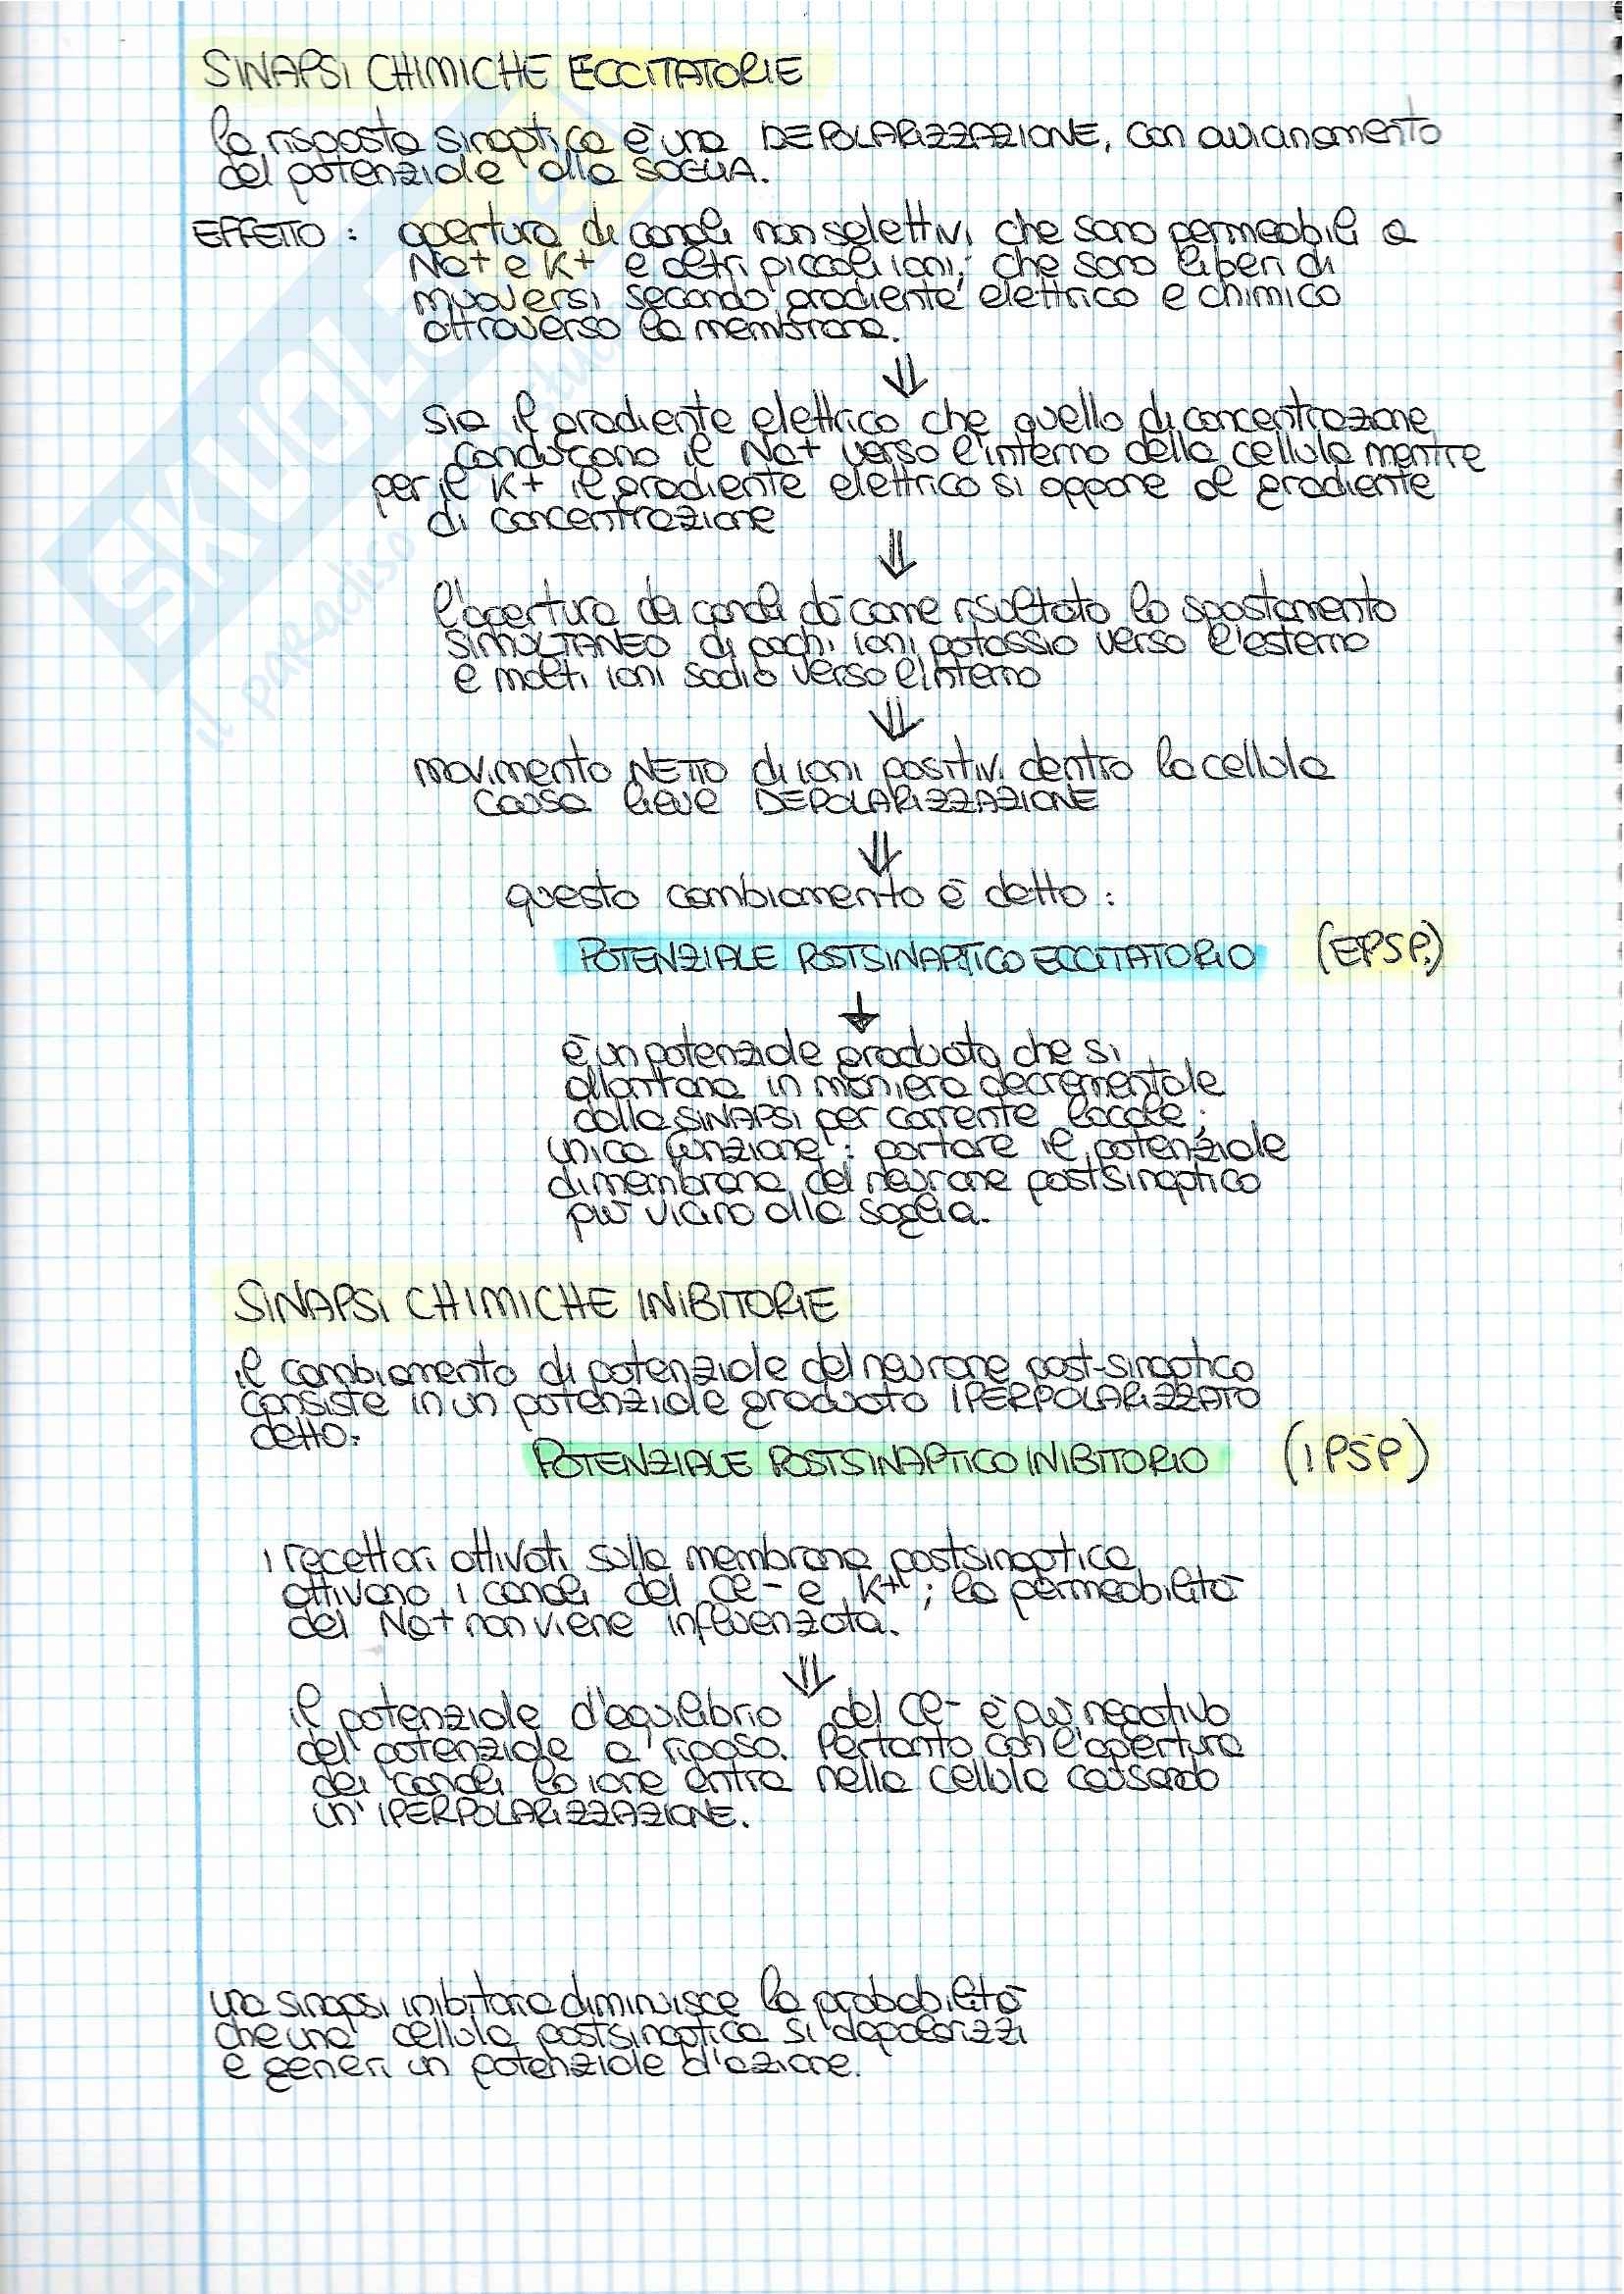 SINAPSI CHIMICHE ECCITATORIE
la risposta sinaptica è una DEPOLARIZZAZIONE, con avvicinamento
del potenziale alla SOGLIA.
EFFETTO : apertura di canali non selettivi che sono permeabili a
Na+ e K+ e altri piccoli ioni, che sono liberi di
muoversi secondo gradiente elettrico e chimico
attraverso la membrana.
⇓
sia il gradiente elettrico che quello di concentrazione
conducono il Na+ verso l'interno della cellula mentre
per il K+ il gradiente elettrico si oppone al gradiente
di concentrazione
⇓
l'apertura dei canali dà come risultato lo spostamento
SIMULTANEO di pochi ioni potassio verso l'esterno
e molti ioni sodio verso l'interno
⇓
movimento NETTO di ioni positivi dentro la cellula
causa lieve DEPOLARIZZAZIONE
⇓
questo cambiamento è detto :
POTENZIALE POSTSINAPTICO ECCITATORIO (EPSP.)
↓
è un potenziale graduato che si
allontana in maniera decrementale
dalla SINAPSI per corrente locale ;
unica funzione : portare il potenziale
di membrana del neurone postsinaptico
più vicino alla soglia.
SINAPSI CHIMICHE INIBITORIE
il cambiamento di potenziale del neurone post-sinaptico
consiste in un potenziale graduato IPERPOLARIZZATO
detto:
POTENZIALE POSTSINAPTICO INIBITORIO (IPSP)
i recettori attivati sulla membrana postsinaptica
attivano i canali del Cl- e K+ ; la permeabilità
del Na+ non viene influenzata.
⇓
il potenziale d'equilibrio del Cl- è più negativo
del potenziale a riposo. Pertanto con l'apertura
dei canali lo ione entra nella cellula causando
un' IPERPOLARIZZAZIONE.
una sinapsi inibitoria diminuisce la probabilità
che una cellula postsinaptica si depolarizzi
e generi un potenziale d'azione.
SKUOLA.NET
il paradiso